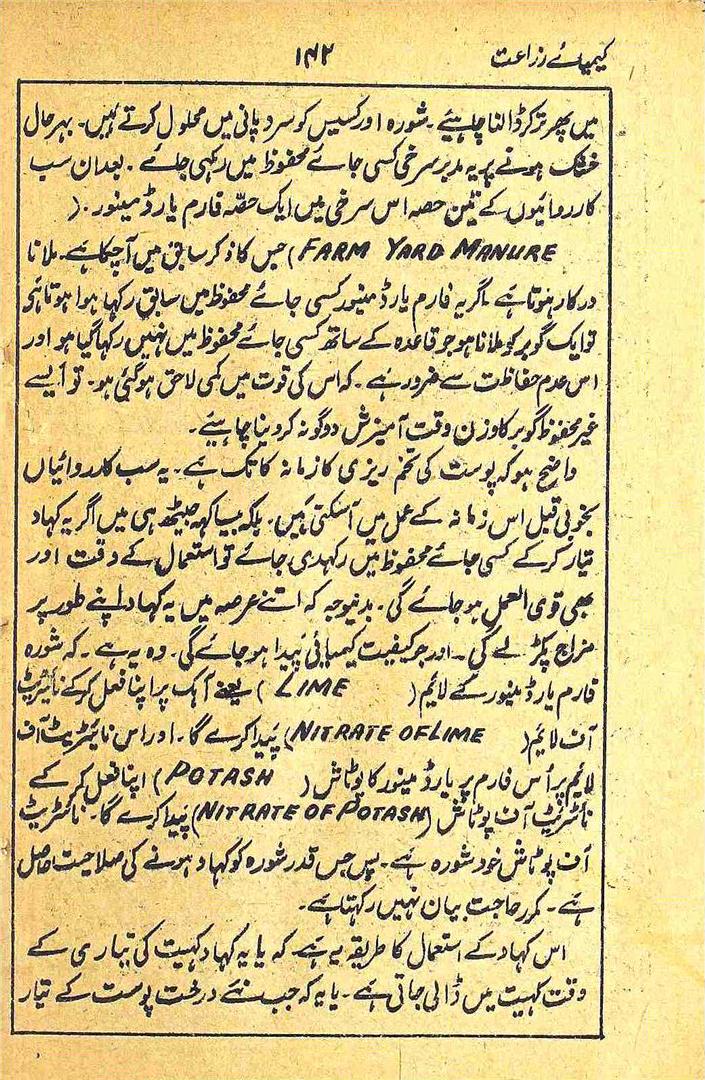 کیمیائے زراعت ۱۴۲
میں پھر تر کر ڈالنا چاہیئے۔ شورہ اور کسیس کو سرد پانی میں محلول کرتے ہیں۔ بہر حال
خشک ہونے پر یہ مدبر سرخی کسی جائے محفوظ میں رکہی جائے۔ بعد ان سب
کارروائیوں کے تین حصہ اس سرخی میں ایک حصّہ فارم یارڈ مینور۔ (
FARM YARD MANURE) جس کا ذکر سابق میں آچکا ہے۔ ملانا
درکار ہوتا ہے مگر یہ فارم یارڈ مینور کسی جائے محفوظ میں سابق رکہا ہوا ہوتا ہی
تو ایک گوبر کو ملانا ہو جو قاعدہ کے ساتھ کسی جائے محفوظ میں نہیں رکہا گیا ہو اور
اس عدم حفاظت سے ضرور ہے۔ کہ اس کی قوت میں کمی لاحق ہوگئی ہو۔ تو ایسے
غیر محفوظ گوبر کا وزن وقت آمیزش دوگونہ کر دینا چاہیئے۔
واضح ہو کہ پوست کی تخم ریزی کا زمانہ کاتک ہے۔ یہ سب کارروائیاں
بخوبی قبل اس زمانہ کے عمل میں آسکتی ہیں۔ بلکہ بیساکہہ جیٹھ ہی میں اگر یہ کہاد
تیار کرکے کسی جائے محفوظ میں رکہدی جائے تو استعمال کے وقت اور
بھی قوی العمل ہو جائے گی۔ بدینوجہ کہ اتنے عرصہ میں یہ کہاد اپنے طور پر
مزاج پکڑ لے گی۔ اور جو کیفیت کیمیائی پیدا ہو جائے گی۔ وہ یہ ہے۔ کہ شورہ
فارم یارڈ مینور کے لائیم (LIME) یعنے آہک پر اپنا فعل کر کے نائیٹریٹ
آف لائیم (NITRATE OF LIME) پیدا کرے گا۔ اور اس نائیٹریٹ آف
لائیم پر اُس فارم پر یارڈ مینور کا پوٹاش (POTASH) اپنا فعل کر کے
نائٹریٹ آف پوٹاش (NITRATE OF POTASH) پیدا کرے گا۔ نائٹریٹ
آف پوٹاش خود شورہ ہے۔ پس جس قدر شورہ کو کہاد ہونے کی صلاحیت حاصل
ہے۔ مکرر حاجت بیان نہیں رکہتا ہے۔
اس کہاد کے استعمال کا طریقہ یہ ہے کہ یا یہ کہاد کہیت کی تیاری کے
وقت کہیت میں ڈالی جاتی ہے۔ یا یہ کہ جب نئے درخت پوست کے تیار